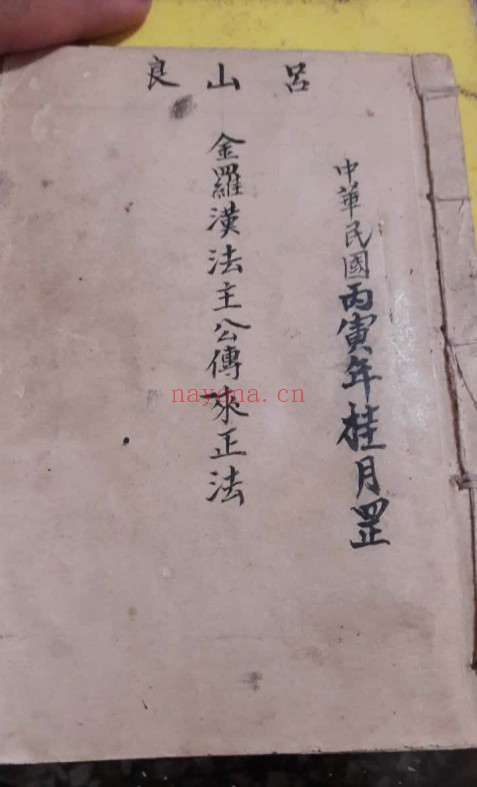 呂山良
中華民國丙寅年桂月罡
金羅漢法主公傳來正法
nayona.cn